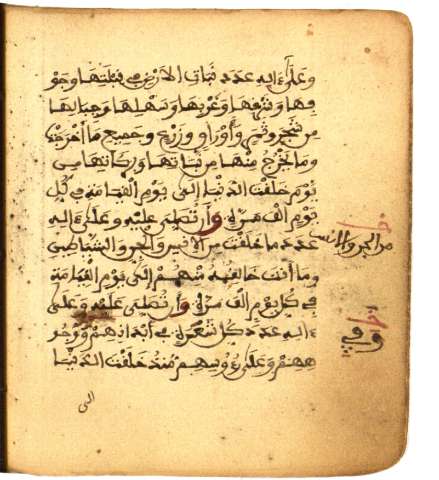 وعلى ءاله عدد نبات الارض في قبلتها وجو
فها وشرقها وغربها وسهلها وجبالها
من شجر وثمر وأوراق وزرع وجميع ما أخرجت
وما يخرج منها من نباتها وبركاتها من
يوم خلقت الدنيا إلى يوم القيامة في كل
يوم ألف مرة وأن تصلي عليه وعلى ءاله
من الجن والانس
عدد ما خلقت من الانس والجن والشياطين
وما أنت خالقه منهم إلى يوم القيامة
في كل يوم ألف مرة وأن تصلي عليه وعلى
وفي
ءاله عدد كل شعرة في أبدانهم ووجو
ههم وعلى رءوسهم منذ خلقت الدنيا
إلى